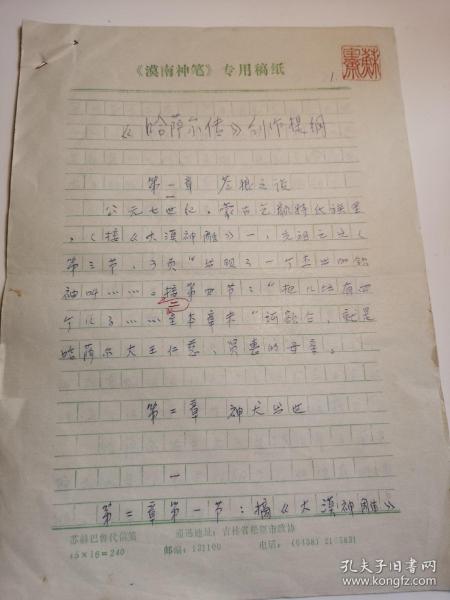 《漠南神笔》专用稿纸
1.
《哈萨尔传》创作提纲
第一章 苍狼之说
一
公元七世纪,蒙古乞颜特氏族里
,(接《大漠神雕》一,先祖之处(
第三节,3页“出现了一个杰出的铁
神叫……二接第四节:“把儿培育四
三
个儿子……至本章末“诃额仑,就是
哈萨尔大王仁慈、贤惠的母亲。
第二章 神犬出世
一
第二章第一节:摘《大漠神雕》
苏赫巴鲁代信笺
15×16=240
通迅地址:吉林省松原市政协
邮编:131100
电话:(0438)21 5831
孔夫子旧书网
www.kongfz.com